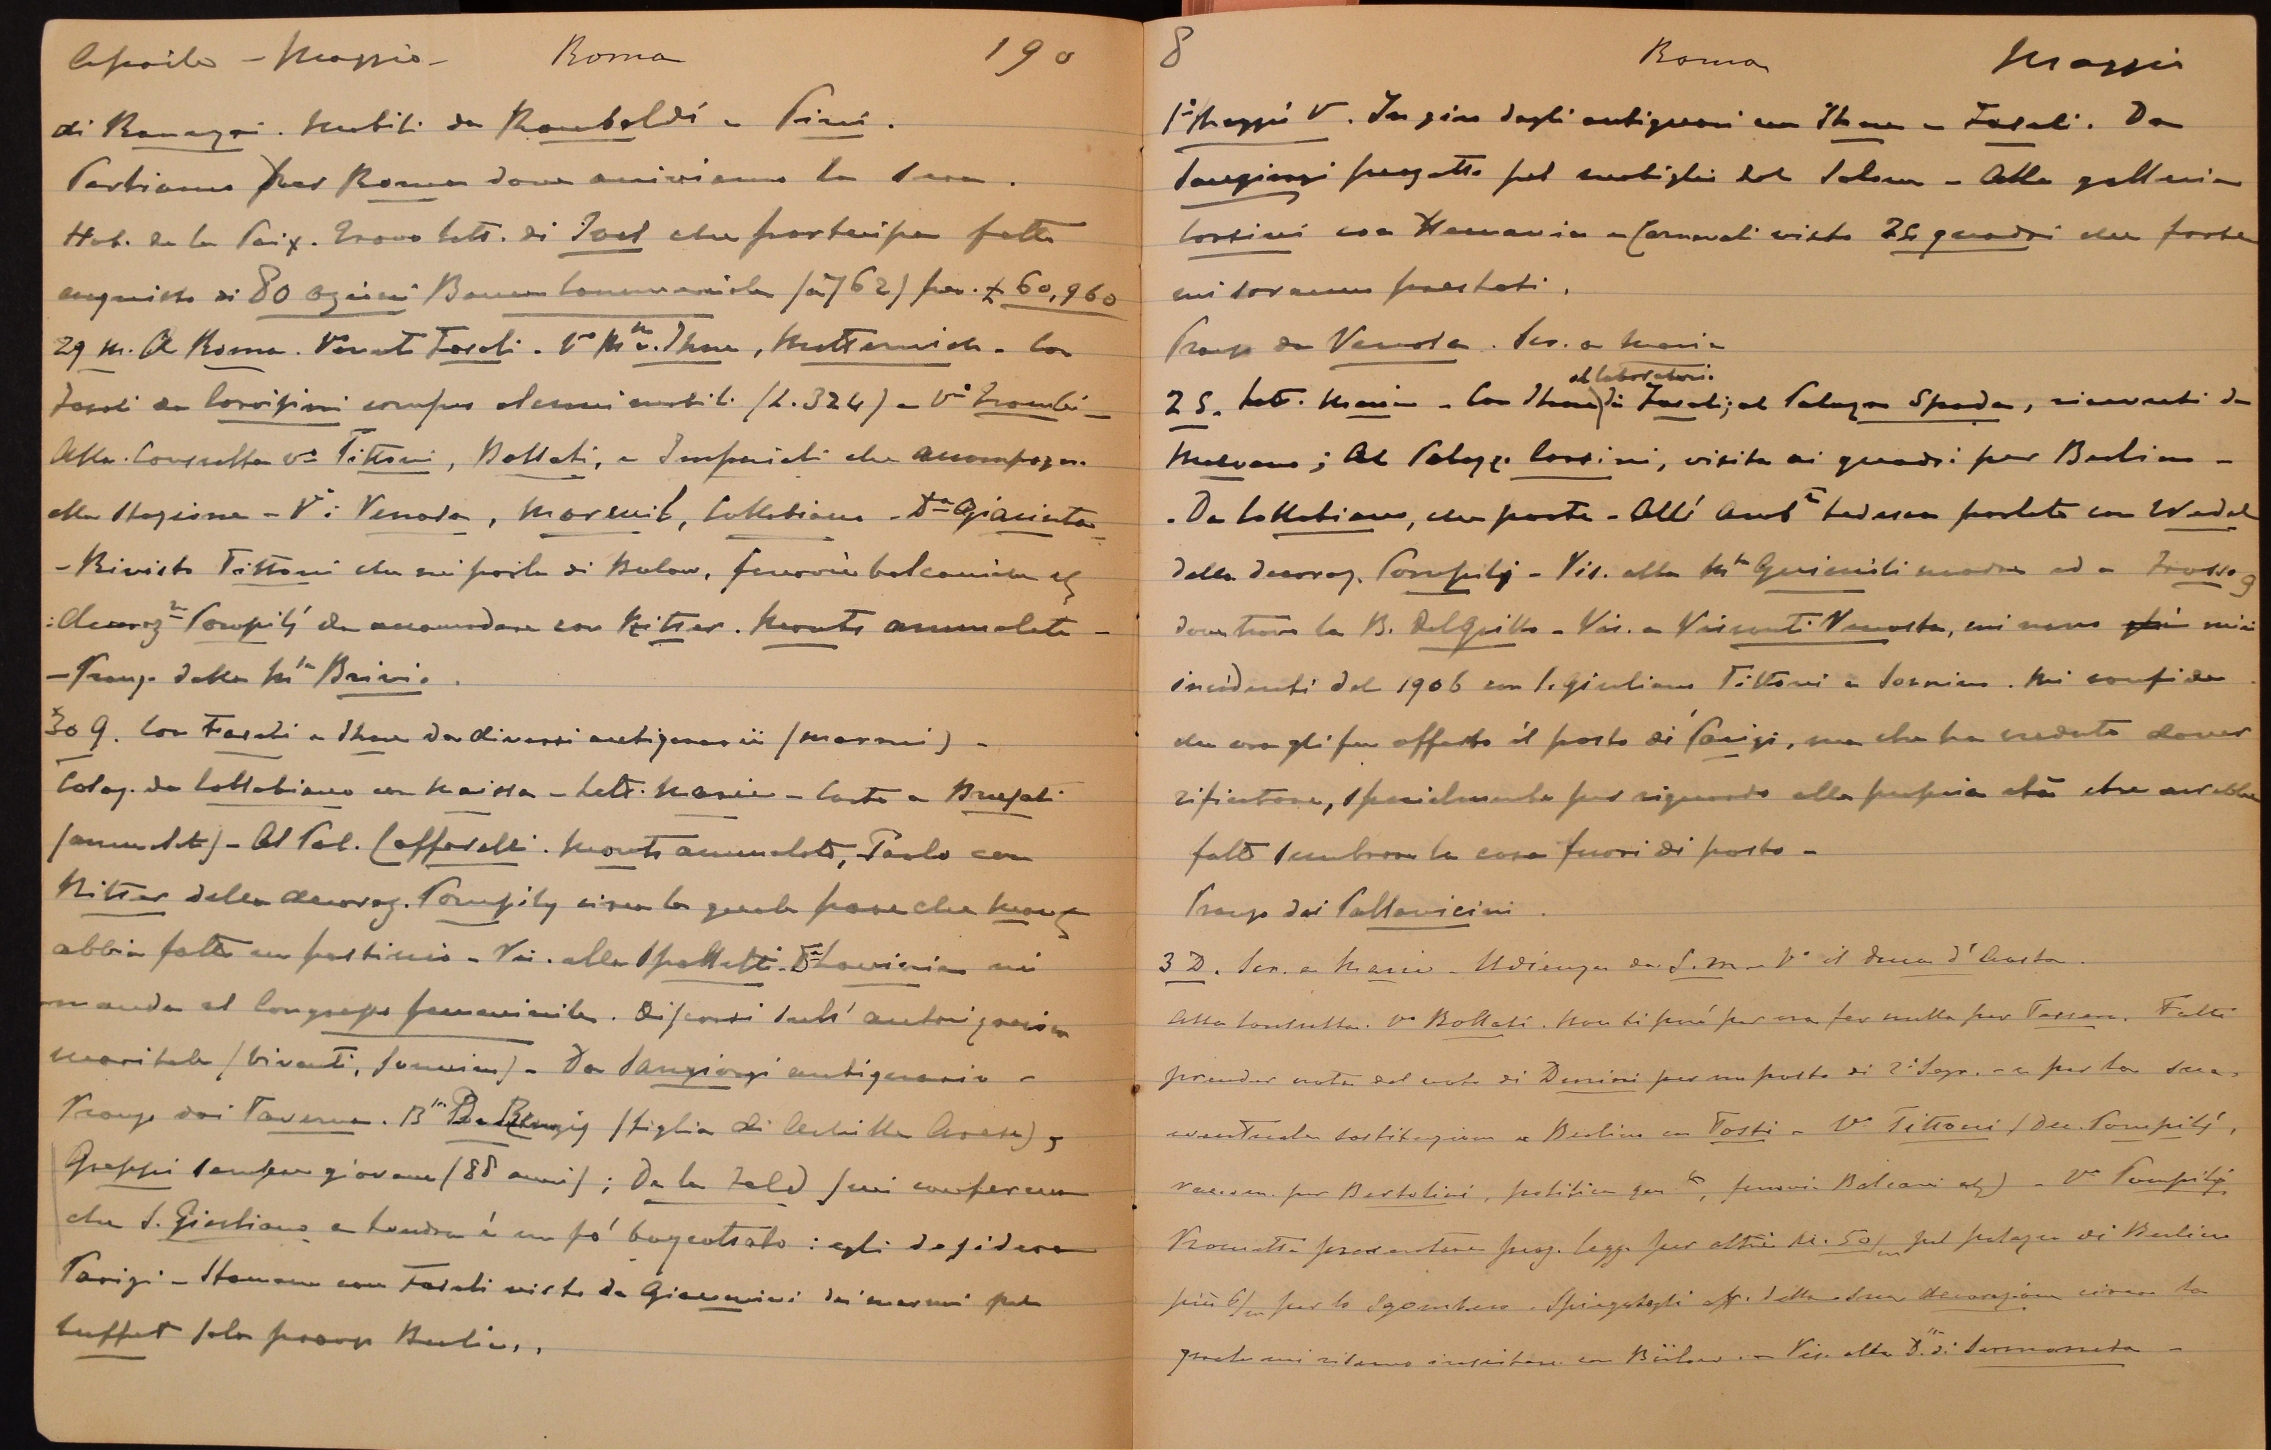 Aprile - Maggio - Roma 190
di Ramazzi. Mobili da Rambaldi e Pini.
Partiamo per Roma dove arriviamo la sera.
Hot. de la Paix. Trovo lett. di Joel che partecipa fatto
acquisto di 80 azioni Banca Commerciale (a 762) per £ 60,960
29 M. A Roma. Venuto Fasoli. Vo Mse Ihne, Metternich. Con
Fasoli da compro alcuni mobili (L. 324) - Vo
Alla Consulta vo Tittoni, Bollati, e Imperiali che accompagno
alla stazione - Vo: Venosa, Collobiano - Da Giacinta
- Rivisto Tittoni che mi parla di Bulow, ferrovie balcaniche
: decoraz.ne Pompilj da accomodare con Ritter. Monts ammalato -
- Pranzo dalla Msa Brivio.
30 G. Con Fasoli e Ihne da diversi antiquarii (marmi) -
Colaz. da Collobiano con Naissa - Lett. Maria - Carta a Brusati
(ammalato) - Al Pal. Caffarelli. Monts ammalato, Parlo con
Ritter della decoraz. Pompilj circa la quale pare che Monts
abbia fatto un pasticcio - Vis. alla Spalletti. Da Lavinia mi
manda al Congresso femminile. Discorsi sull' autorizzazione
maritale (Vivanti, Sonnino) - Da Sangiorgi antiquario -
Pranzo dai Taverna. Bssa De Renzis (figlia di Achille Arese),
Greppi sempre giovane (88 anni); De la Feld (mi conferma
che S. Giuliano a Londra è un pò boycottato: egli desidera
Parigi - Stamane con Fasoli visto da Giacomini dei marmi pel
buffet sala pranzo Berlino.
8 Roma Maggio
1° Maggio V. In giro dagli antiquari con Ihne e Fasoli. Da
Sangiorgi progetto pel mobiglio del Salone - Alla galleria
Corsini con Hermanin e Cornovali visto 25 quadri che forse
mi saranno prestati.
Pranzo da Venosa. Scr. a Maria
2 S. Lett. Maria - Con Ihne al laboratorio di Fasoli; al Palazzo Spada, ricevuti da
; Al Palazzo Corsini, visita ai quadri per Berlino -
- Da Collobiano, che parte - All' Ambta tedesca parlato con Wedel
della decoraz. Pompilj - Vis. alla Msa Guiccioli madre ed a
dove trovo la B. Del Grillo - Vis. a Visconti Venosta, mi narro più miei
incidenti del 1906 con S. Giuliano Tittoni e Sonnino. Mi confida
che ora gli fu offerto il posto di Parigi, ma che ha creduto dover
rifiutare, specialmente per riguardo alla propria età che avrebbe
fatto sembrare la cosa fuori di posto -
Pranzo dai Pallavicini.
3 D. Scr. a Maria - Udienza da S.M. - Vo il duca d' Aosta.
Alla Consulta. Vo Bollati. Non si può per ora far nulla per Tassara. Fatti
prender nota del voto di Durini per un posto di 2° Segr. - e per la sua
eventuale sostituzione a Berlino con Tosti - Vo Tittoni (Dec. Pompilj,
raccom. per Bertolini, politica gen.le, ferrovie Balcani etc) - Vo Pompilj
Promette presentare prog. legge per altri M. 50/m pel palazzo di Berlino
più 6/m per lo sgombero. Spiegategli aff. della sua decorazione circa la
quale mi riservo insistere con Bülow. - Vis. alla Dssa di Sermoneta -